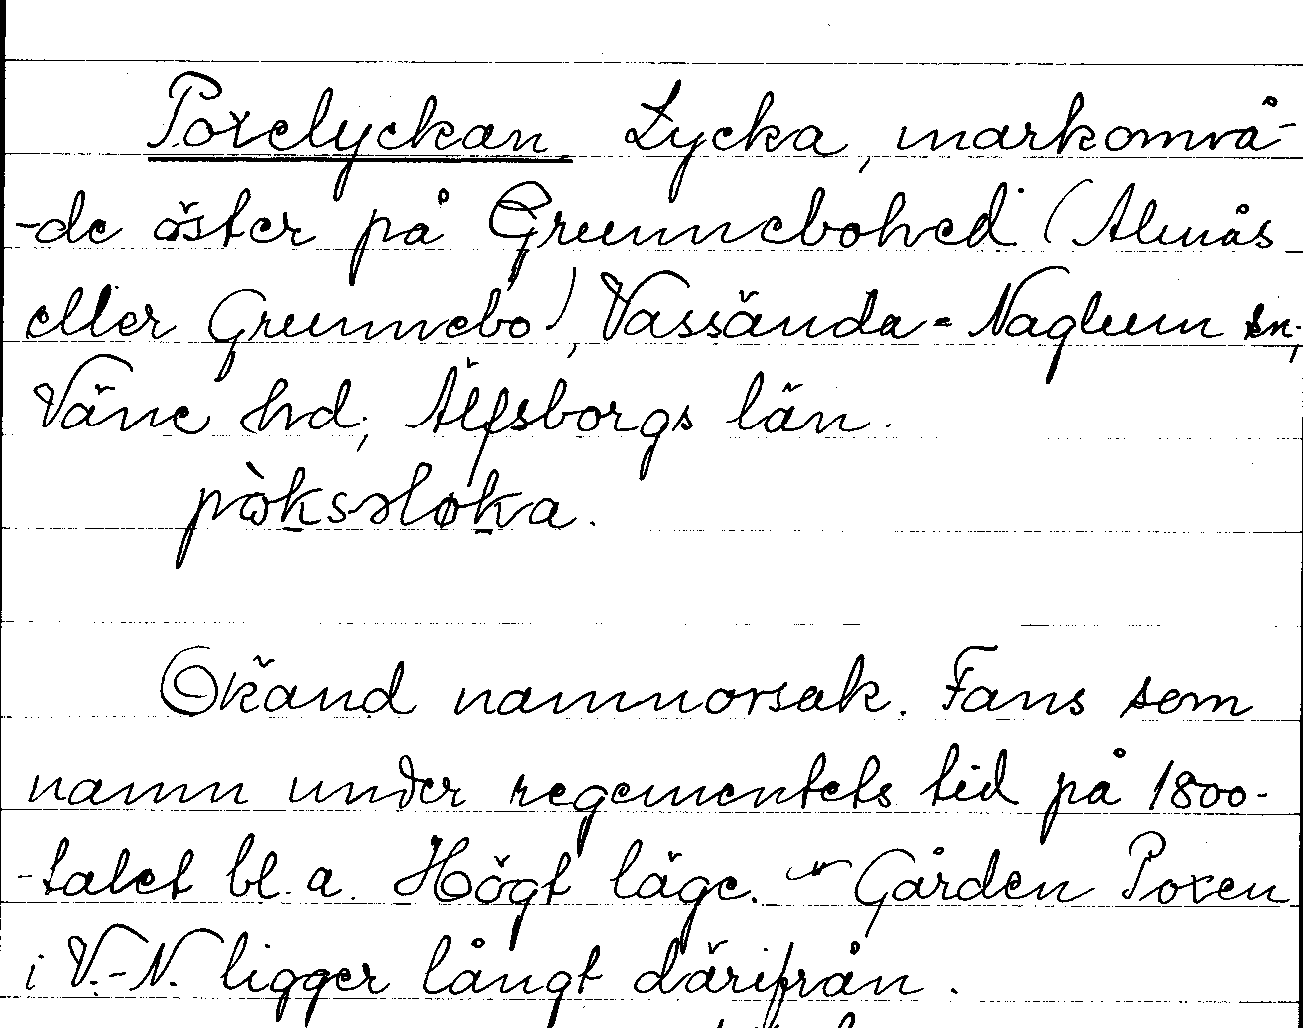 Poxelyckan. Lycka, markområ-
-de öster på Grunnebohed (Almås
eller Grunnebo), Vassända-Naglum sn,
Väne hd, Älfsborgs län.
Okänd namnorsak. Fans som
namn under regementets tid på 1800-
-talet bl. a. Högt läge. - Gården Poxen
i V.-N. ligger långt därifrån.